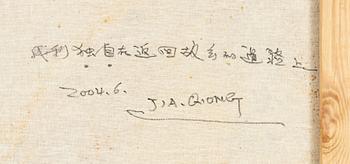 我刹独自在返回故乡的道路上
2004.6.
JIA.QIONG